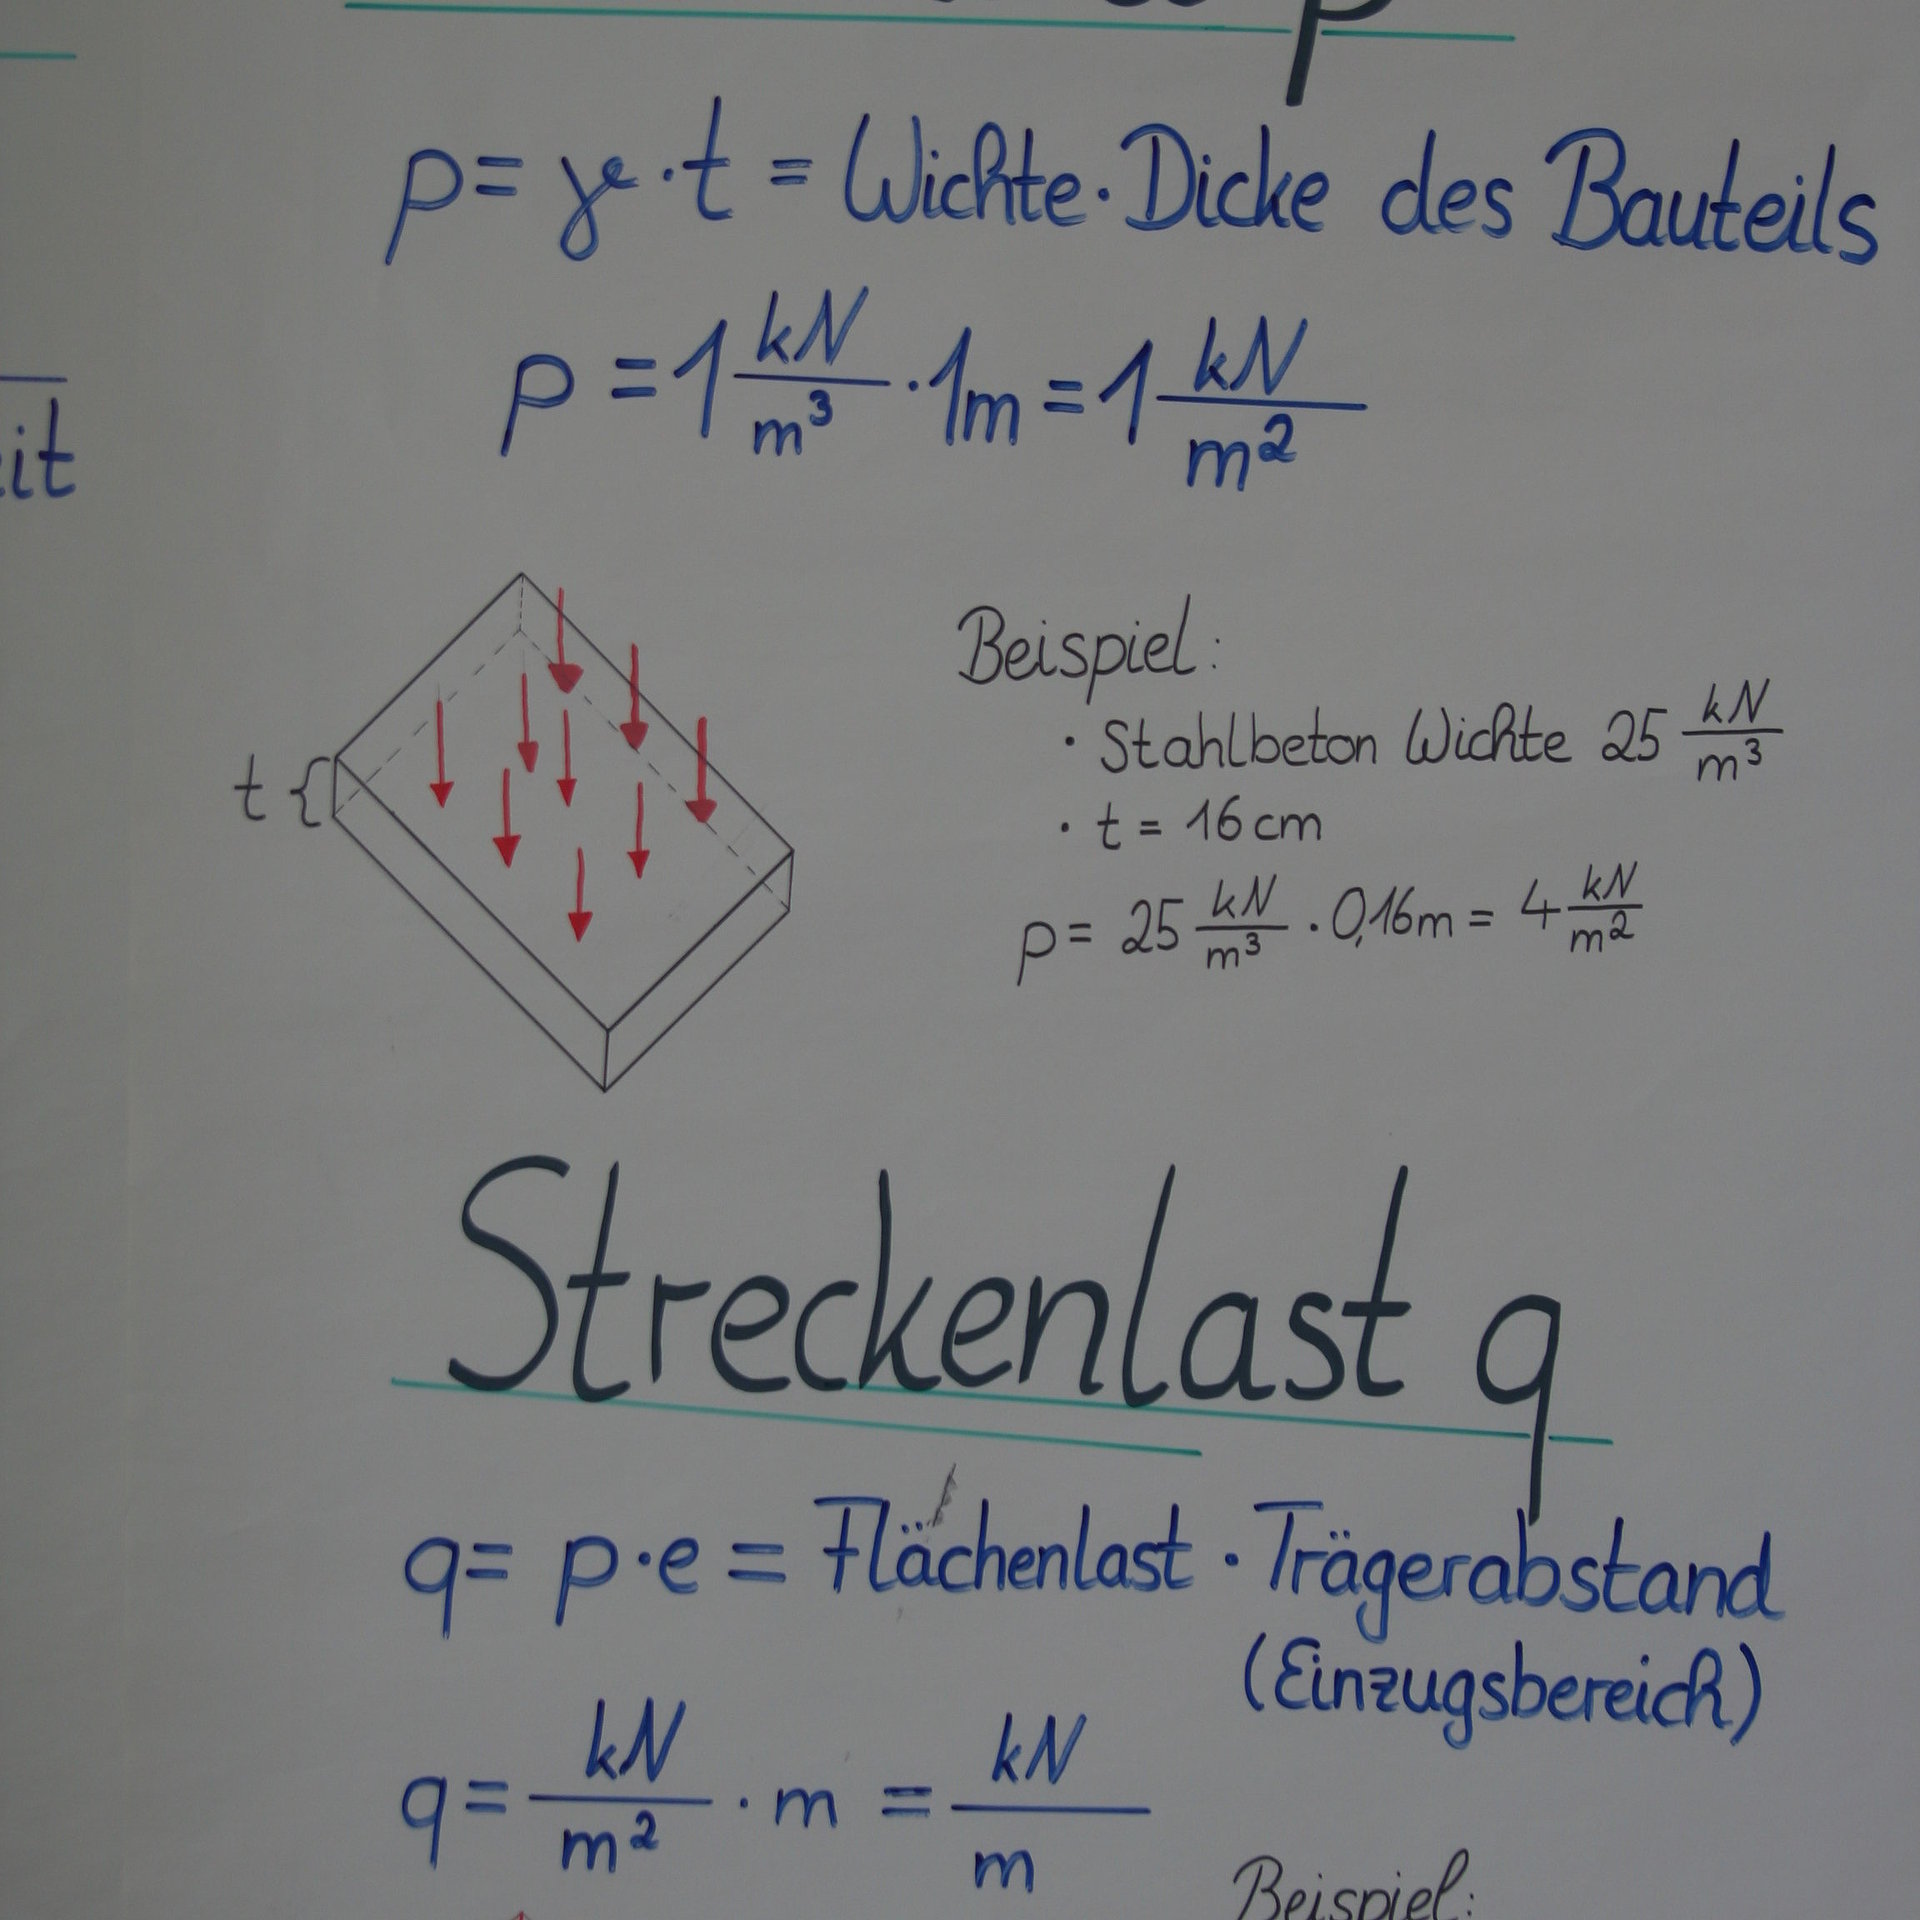 p
p = γ · t = Wichte · Dicke des Bauteils
p = 1 kN/m³ · 1m = 1 kN/m²
it
Beispiel:
· Stahlbeton Wichte 25 kN/m³
t {
· t = 16 cm
p = 25 kN/m³ · 0,16m = 4 kN/m²
Streckenlast q
q = p · e = Flächenlast · Trägerabstand
(Einzugsbereich)
q = kN/m² · m = kN/m
Beispiel: